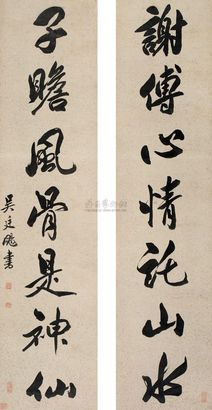 謝傅心情託山水
子瞻風骨是神仙
吳廷飏書